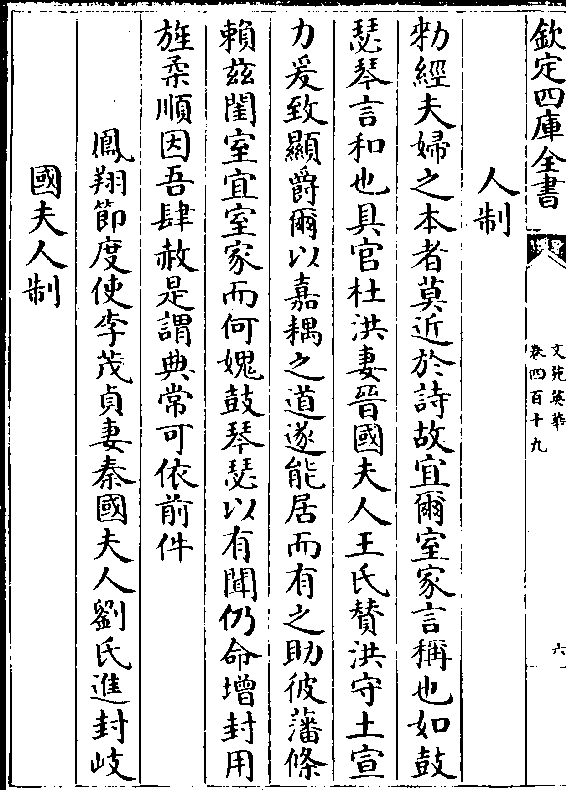 欽定四庫全書
文苑英華
卷四百十九
六
人制
勑經夫婦之本者莫近於詩故宜爾室家言稱也如鼓
瑟琴言和也具官杜洪妻晉國夫人王氏賛洪守土宣
力爰致顯爵爾以嘉耦之道遂能居而有之助彼藩條
賴兹閨室宜室家而何媿鼓琴瑟以有聞仍命增封用
旌柔順因吾肆赦是謂典常可依前件
鳳翔節度使李茂貞妻秦國夫人劉氏進封岐
國夫人制